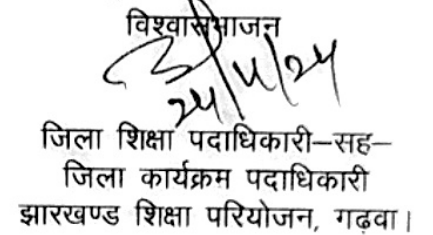 विश्वासभाजन
जिला शिक्षा पदाधिकारी–सह–
जिला कार्यक्रम पदाधिकारी
झारखण्ड शिक्षा परियोजन, गढ़वा।